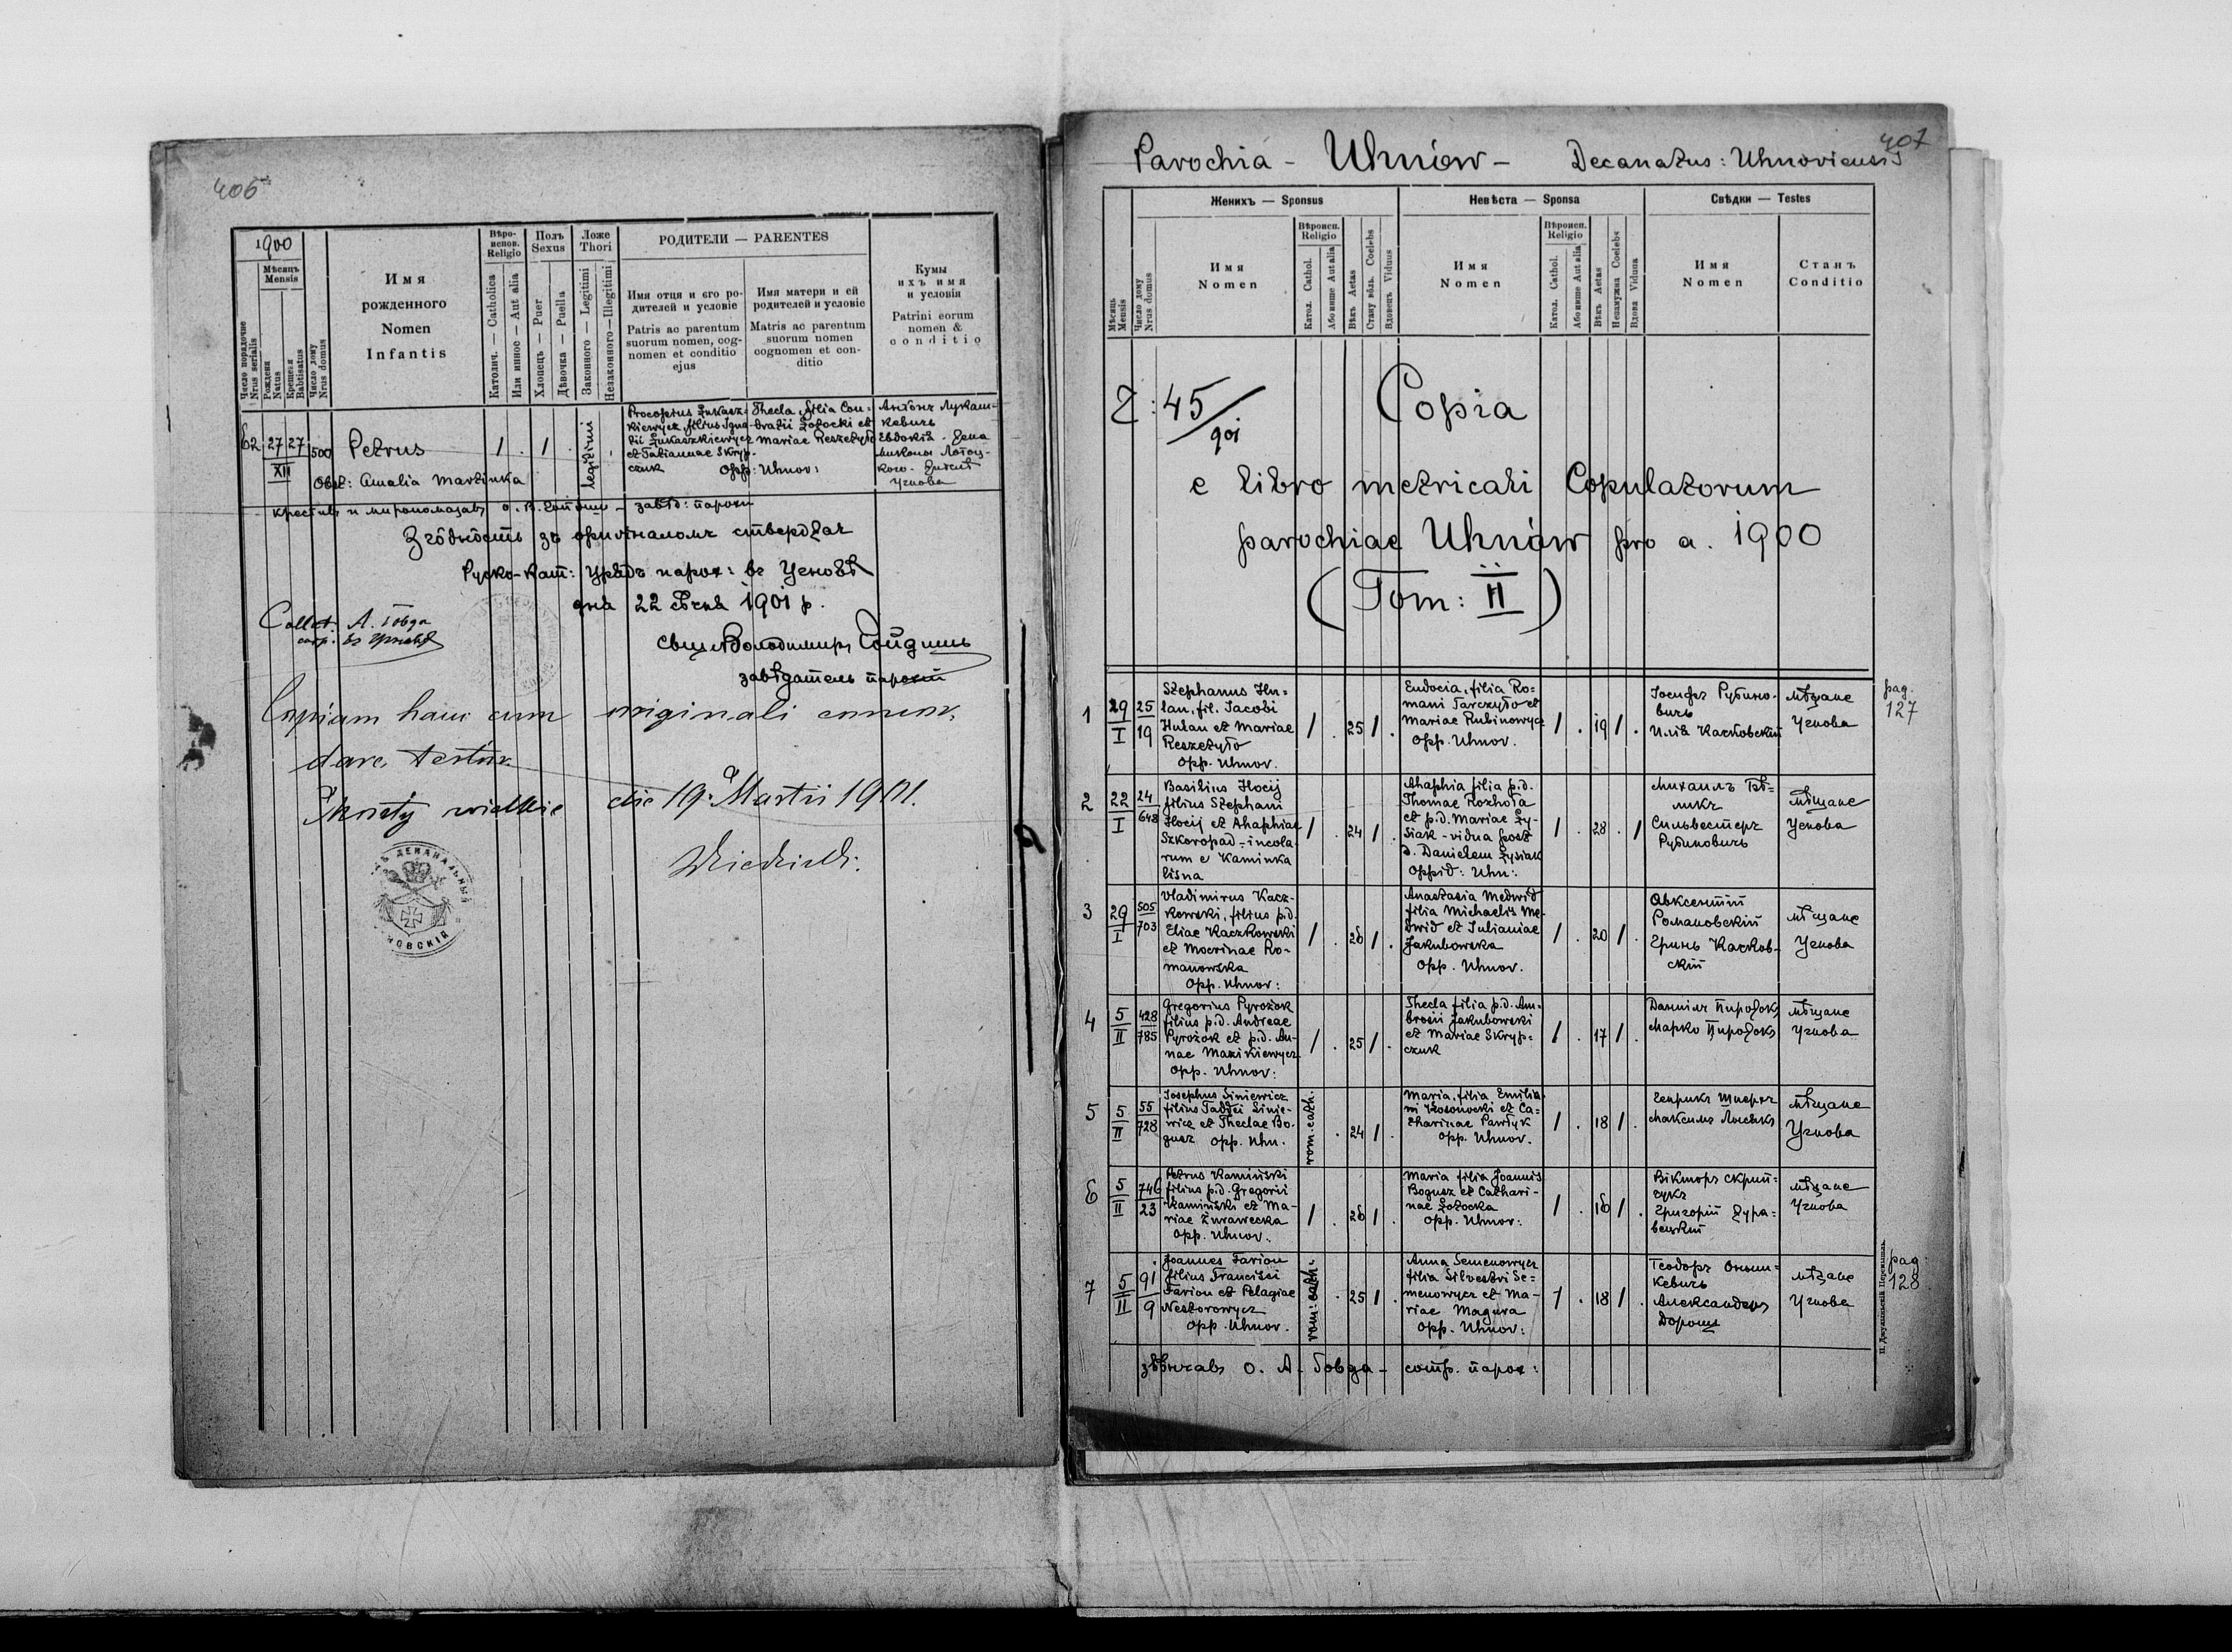 406
1900
Мѣсяцъ
Mensis
Число порядочне
Nrus serialis
Рожденя
Natus
Крещеня
Babtisatus
Число дому
Nrus domus
Имя
рожденного
Nomen
Infantis
Вѣро-
испов.
Religio
Католич. — Catholica
Или инное — Aut alia
Полъ
Sexus
Хлопець — Puer
Дѣвочка — Puella
Ложе
Thori
Законного — Legitimi
Незаконного — Illegitimi
РОДИТЕЛИ — PARENTES
Имя отця и его ро-
дителей и условіе
Patris ac parentum
suorum nomen, cog-
nomen et conditio
ejus
Имя матери и ей
родителей и условіе
Matris ac parentum
suorum nomen
cognomen et con-
ditio
Кумы
ихъ имя
и условія
Patrini eorum
nomen &
conditio
62 27 27 XII 500 Petrus 1 . 1 . legitimi .
Procopius Łukasz-
kiewycz, filius Igna-
tii Łukaszkiewycz
et Tatiannae Skryp-
czuk
Thecla, filia Con-
dratii Łotocki et
Mariae Reszetyło
Opp: Uhnov:
Антонъ Лукаш-
кевичъ
Евдокія - жена
Миколы Лотоц-
кого -
Угнова
Obst: Amalia Martinka
крестивъ и миропомазавъ о. В. - завѣд: парохіи
Згôдность зъ оригіналомъ стверджає
Руско-кат: урядъ парох: въ Угновѣ
дня 22 січня 1901 р.
Collat. А. Говда
сотр. въ Угновѣ
свщ. Володимиръ
завѣдатель парохіи
Copiam hanc cum originali concor-
dare testor
Mosty wielkie die 19. Martii 1901.
407
Parochia - Uhnów - Decanatus: Uhnoviensis
Женихъ — Sponsus
Невѣста — Sponsa
Свѣдки — Testes
Мѣсяць
Mensis
Число дому
Nrus domus
Имя
Nomen
Вѣроисп.
Religio
Катол. Cathol.
Або инше Aut alia
Вѣкъ Aetas
Стану вôльн. Coelebs
Вдовець Viduus
Имя
Nomen
Вѣроисп.
Religio
Катол. Cathol.
Або инше Aut alia
Вѣкъ Aetas
Незамужна Coelebs
Вдова Vidua
Имя
Nomen
Станъ
Conditio
Z: 45/901
Copia
e libro metricali Copulatorum
parochiae Uhnów pro a. 1900
(Tom: II)
1 29 I 25 19
Stephanus Hu-
lan, fil. Jacobi
Hulan et Mariae
Reszetyło
Opp. Uhnov.
1 . 25 1 .
Eudocia, filia Ro-
mani Tarczyło et
Mariae Rubinowycz
Opp. Uhnov.
1 . 19 1 .
Іосифъ Рубино-
вичъ
Илія Качковскій
мѣщане
Угнова
pag.
127
2 22 I 24 648
Basilius Hocij
filius Stephani
Hocij et Ahaphiae
Szkoropad - incola-
rum e Kaminka
lisna
1 . 24 1 .
Ahaphia filia p.d.
Thomae Rozhoła
et p.d. Mariae Ły-
siak - vidua post
p. Danielem Łysiak
Oppid: Uhn:
1 . 28 . 1
Михаилъ Бѣ-
ликъ
Сильвестеръ
Рубиновичъ
мѣщане
Угнова
3 29 I 505 703
Vladimirus Kacz-
kowski, filius p.d.
Eliae Kaczkowski
et Macrinae Ro-
manowska
Opp. Uhnov:
1 . 26 1 .
Anastasia Medwid
filia Michaelis Me-
dwid et Julianiae
Jakubowska
Opp. Uhnov.
1 . 20 1 .
Авксентій
Романовскій
Гринь Качков-
скій
мѣщане
Угнова
4 5 II 428 785
Gregorius Pyrożok
filius p.d. Andreae
Pyrożok et p.d. An-
nae Mazikiewycz
Opp. Uhnov:
1 . 25 1 .
Thecla filia p.d. Am-
brosii Jakubowski
et Mariae Skryp-
czuk
1 . 17 1 .
Даниілъ Пирожокъ
Марко Пирожокъ
мѣщане
Угнова
5 5 II 55 728
Josephus Siniewicz
filius Taddei Sinie-
wicz et Theclae Bo-
gusz Opp. Uhn.
rom. cath. . 24 1 .
Maria, filia Emilia-
ni et Ca-
tharinae Pawłyk
Opp. Uhnov.
1 . 18 1 .
Генрикъ
Максимъ Лысякъ
мѣщане
Угнова
6 5 II 746 23
Petrus Kamiński
filius p.d. Gregorii
Kamiński et Ma-
riae Żurawecka
Opp. Uhnov:
1 . 26 1 .
Maria filia Joannis
Bogusz et Cathari-
nae Łotocka
Opp. Uhnov:
1 . 16 1 .
Вікторъ Скрип-
чукъ
Григорій Жура-
вецкій
мѣщане
Угнова
7 5 II 91 9
Joannes Farion
filius Francisci
Farion et Pelagiae
Nestorowycz
Opp. Uhnov.
rom: cath. . 25 1 .
Anna Semenowycz
filia Silvestri Se-
menowycz et Ma-
riae Magura
Opp. Uhnov:
1 . 18 1 .
Теодоръ Ониш-
кевичъ
Александеръ
Дорошъ
мѣщане
Угнова
pag
128
звѣнчавъ о. А. Говда - сотр. парох: